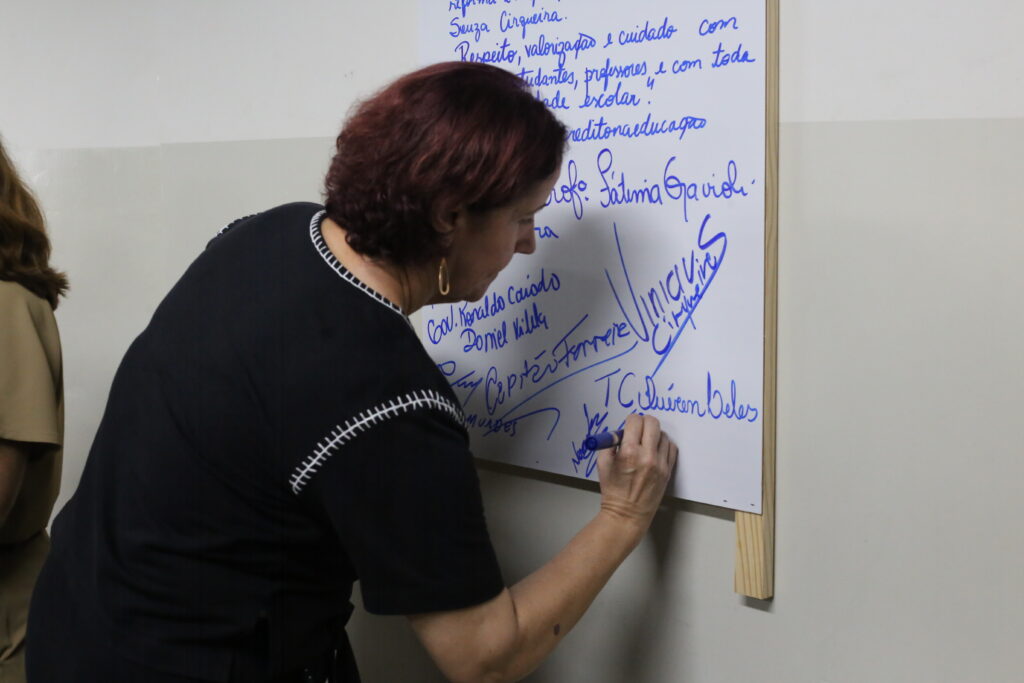 Souza Cirqueira.
Respeito, valorização e cuidado com
tudantes, professores, e com toda
dade escolar."
reditonaeducação
Profª. Fátima Gavioli.
ra
Gov. Ronaldo Caiado
Daniel Vilela
Vinicius
Cirqueira
Capitão Ferreira
TC Quéren Veles